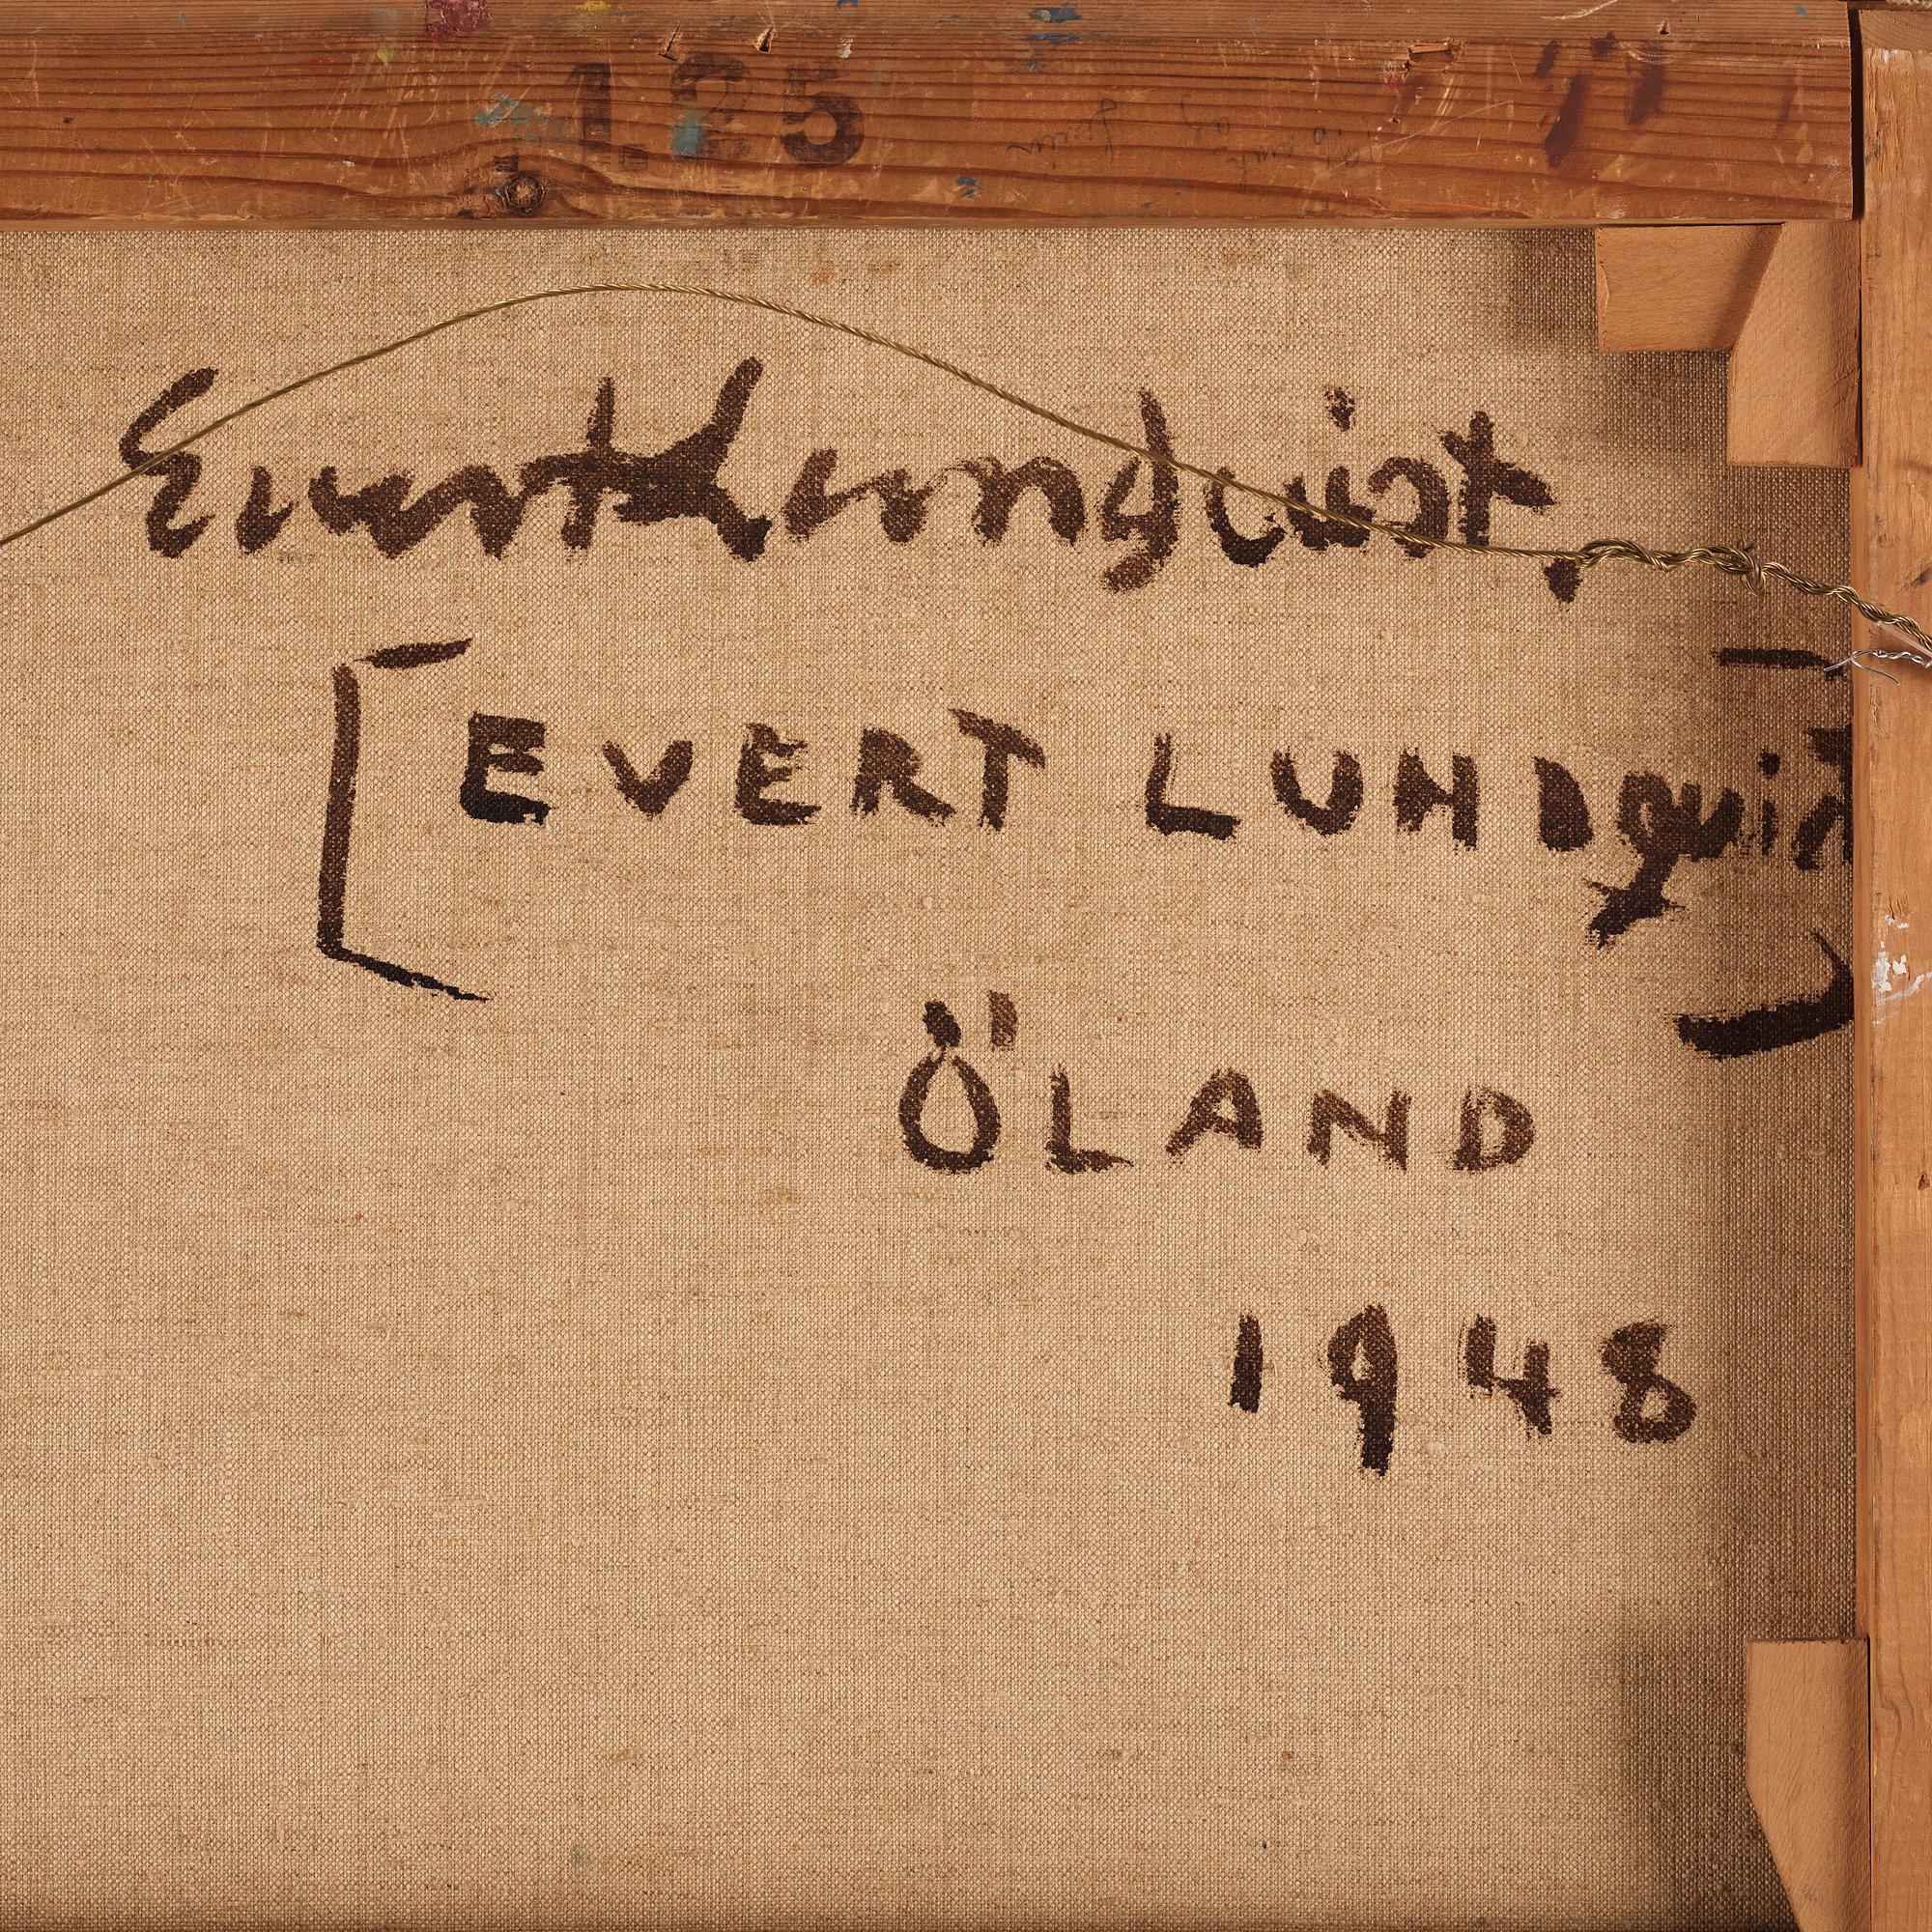 125
Evert Lundquist,
[EVERT LUNDquist]
ÖLAND
1948